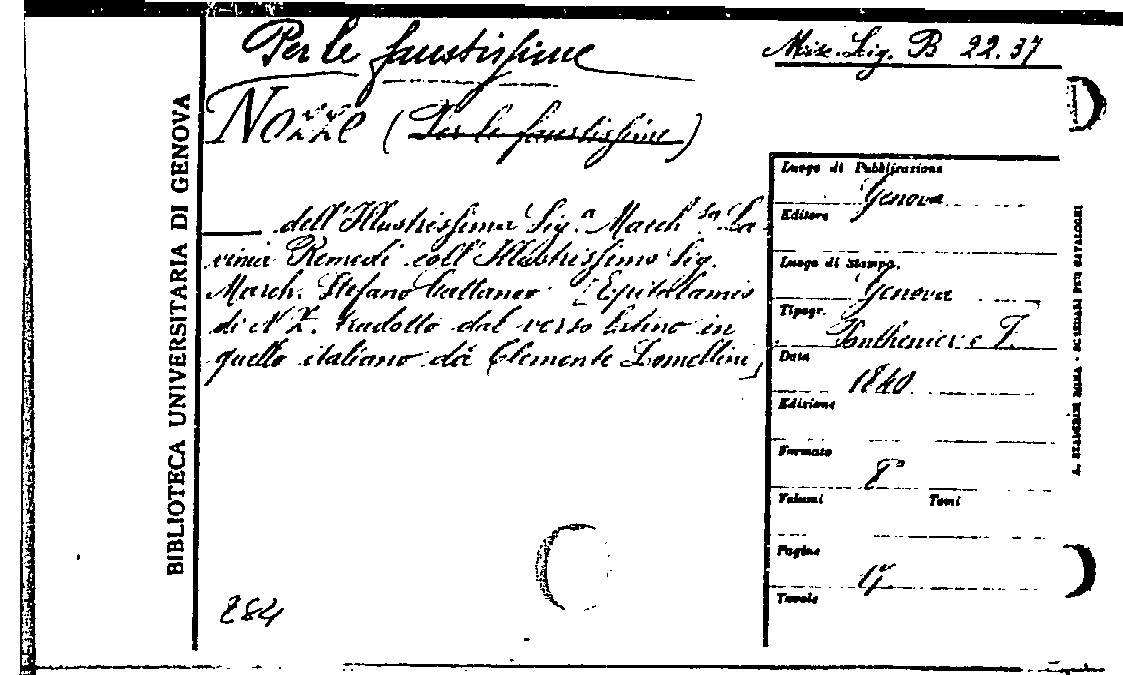 Per le faustissime
Misc. Lig. B 22.37
Nozze (Per le faustissime)
dell'Illustrissima Sig.ª March.sa La
vinia Remedi coll'Illustrissimo Sig.
March. Stefano Cattaneo [Epitalamio
di N Z. tradotto dal verso latino in
quello italiano dá Clemente Lomellini]
284
BIBLIOTECA UNIVERSITARIA DI GENOVA
Luogo di Pubblicazione
Genova
Editore
Luogo di Stampa.
Genova
Tipogr.
Ponthenier e F.
Data
1840
Edizione
Formato
8°
Volumi Tomi
Pagine
17
Tavole
A. STADERINI ROMA - SCHEDARI PER CATALOGHI